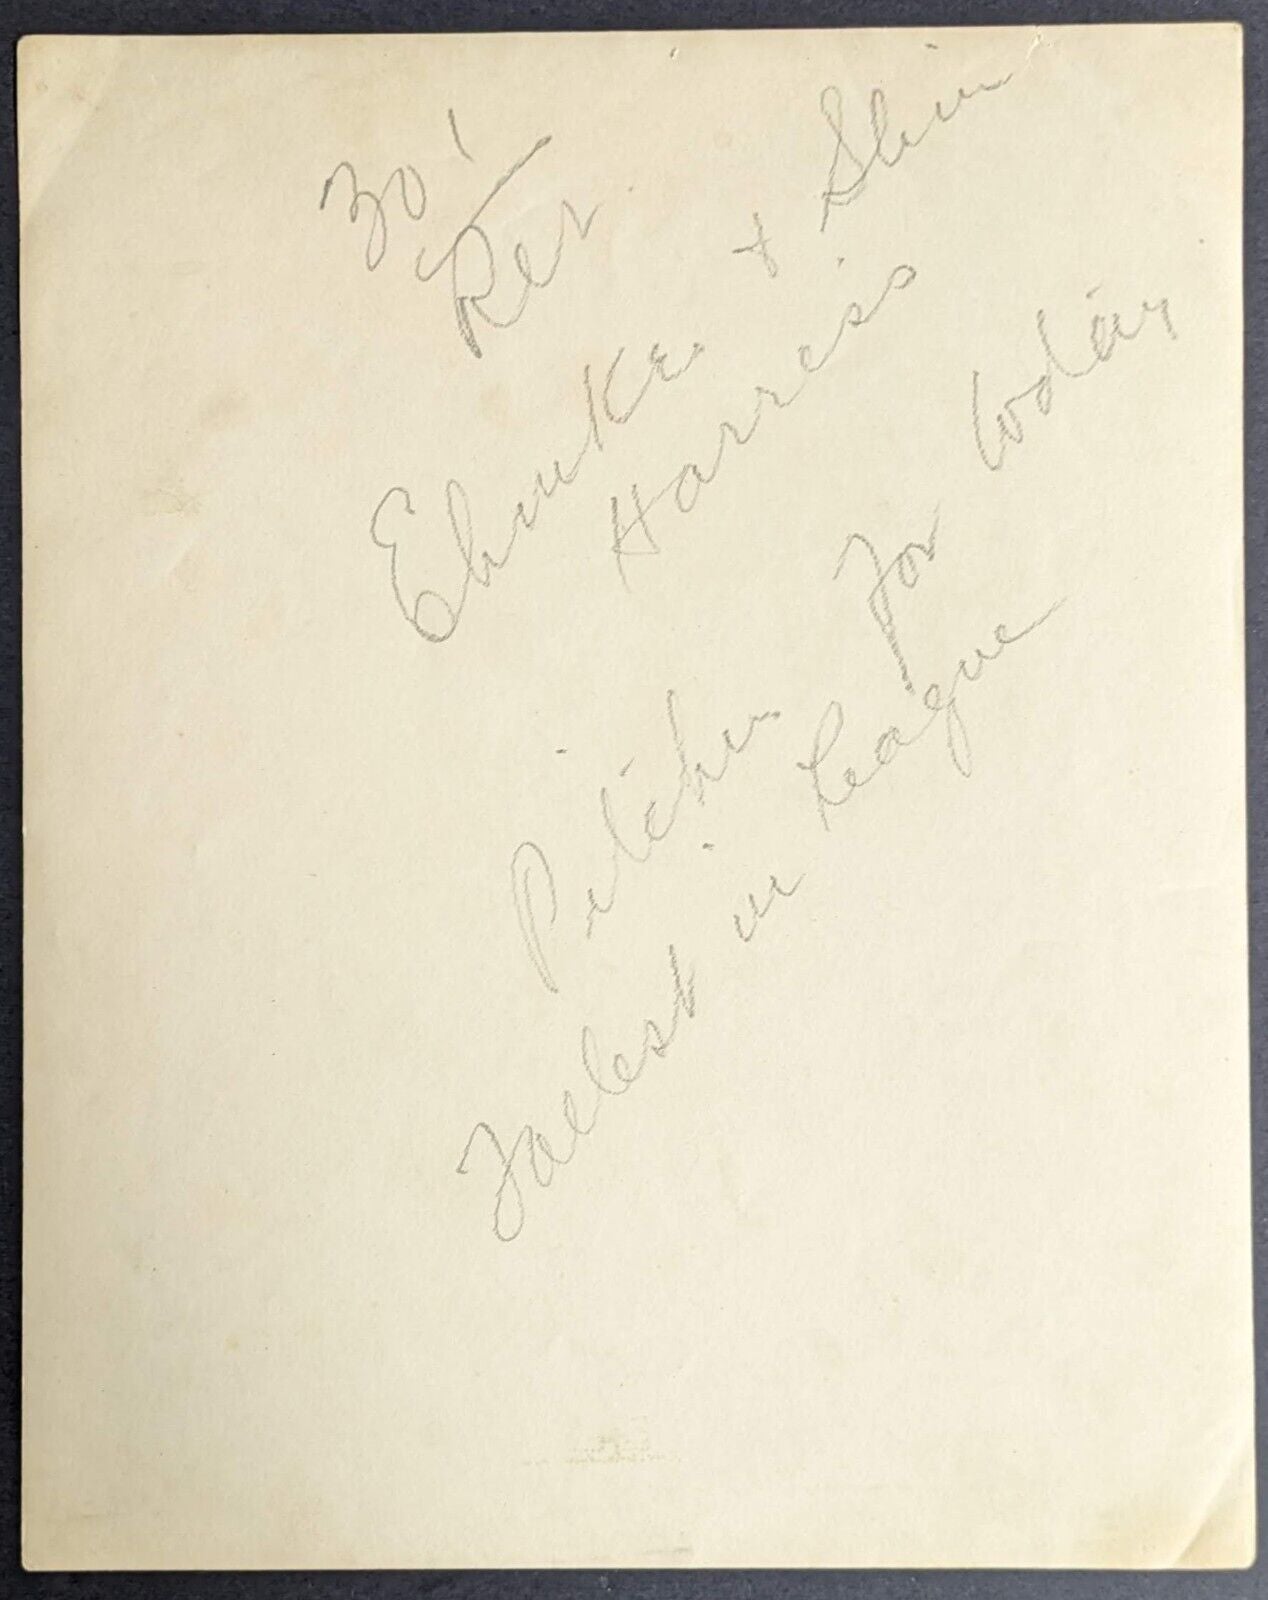 30'
Rev.
Ehmke & Slim
Harriss
Pitcher For today
Tallest in League